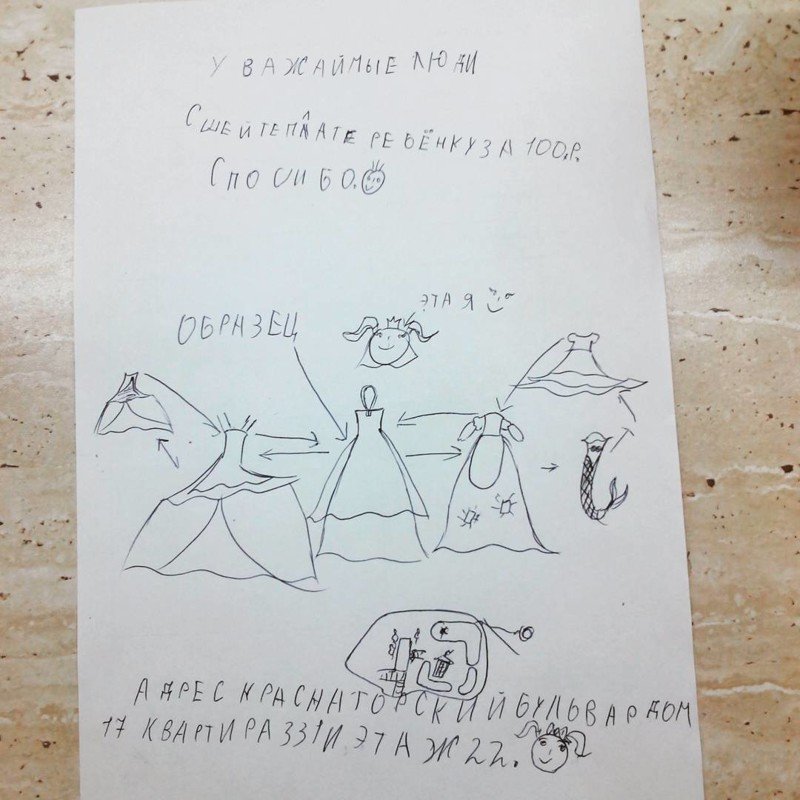 УВАЖАЙМЫЕ ЛЮДИ
СШЕЙТЕ ПЛАТЕ РЕБЁНКУ ЗА 100.Р.
СПОСИБО.
ЭТА Я
ОБРАЗЕЦ
АДРЕС КРАСНАГОРСКИЙ БУЛЬВАР ДОМ
17 КВАРТИРА 331 И ЭТАЖ 22.